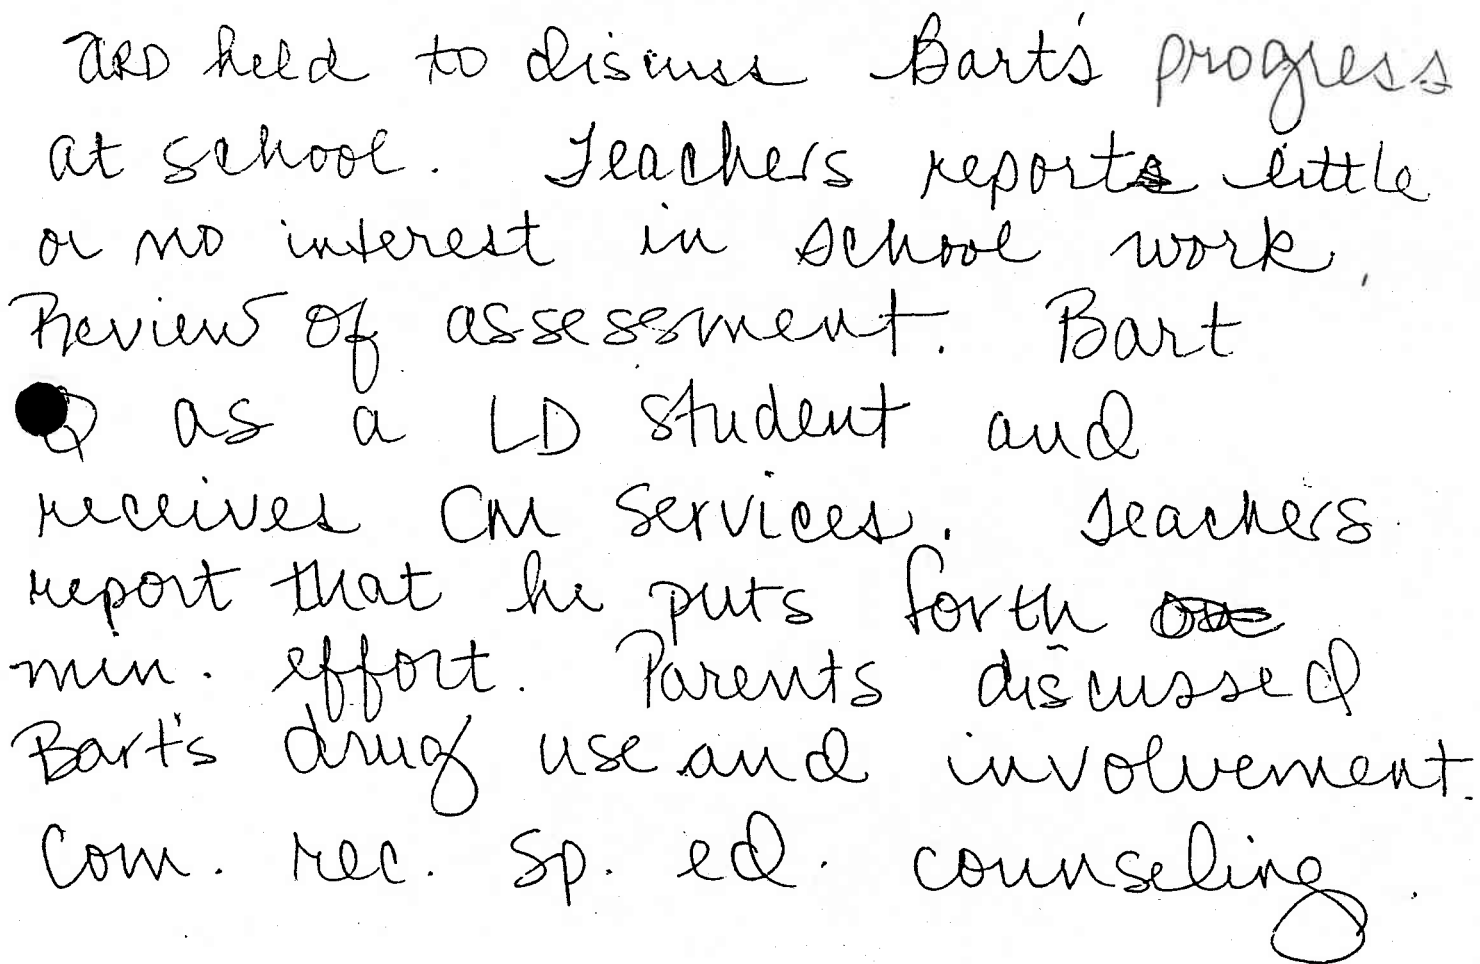 ARD held to discuss Bart's progress
at school. Teachers report little
or no interest in school work.
Review of assessment. Bart
Q as a LD student and
receives CM services. Teachers
report that he puts forth
min. effort. Parents discussed
Bart's drug use and involvement.
Com. rec. sp. ed. counseling.